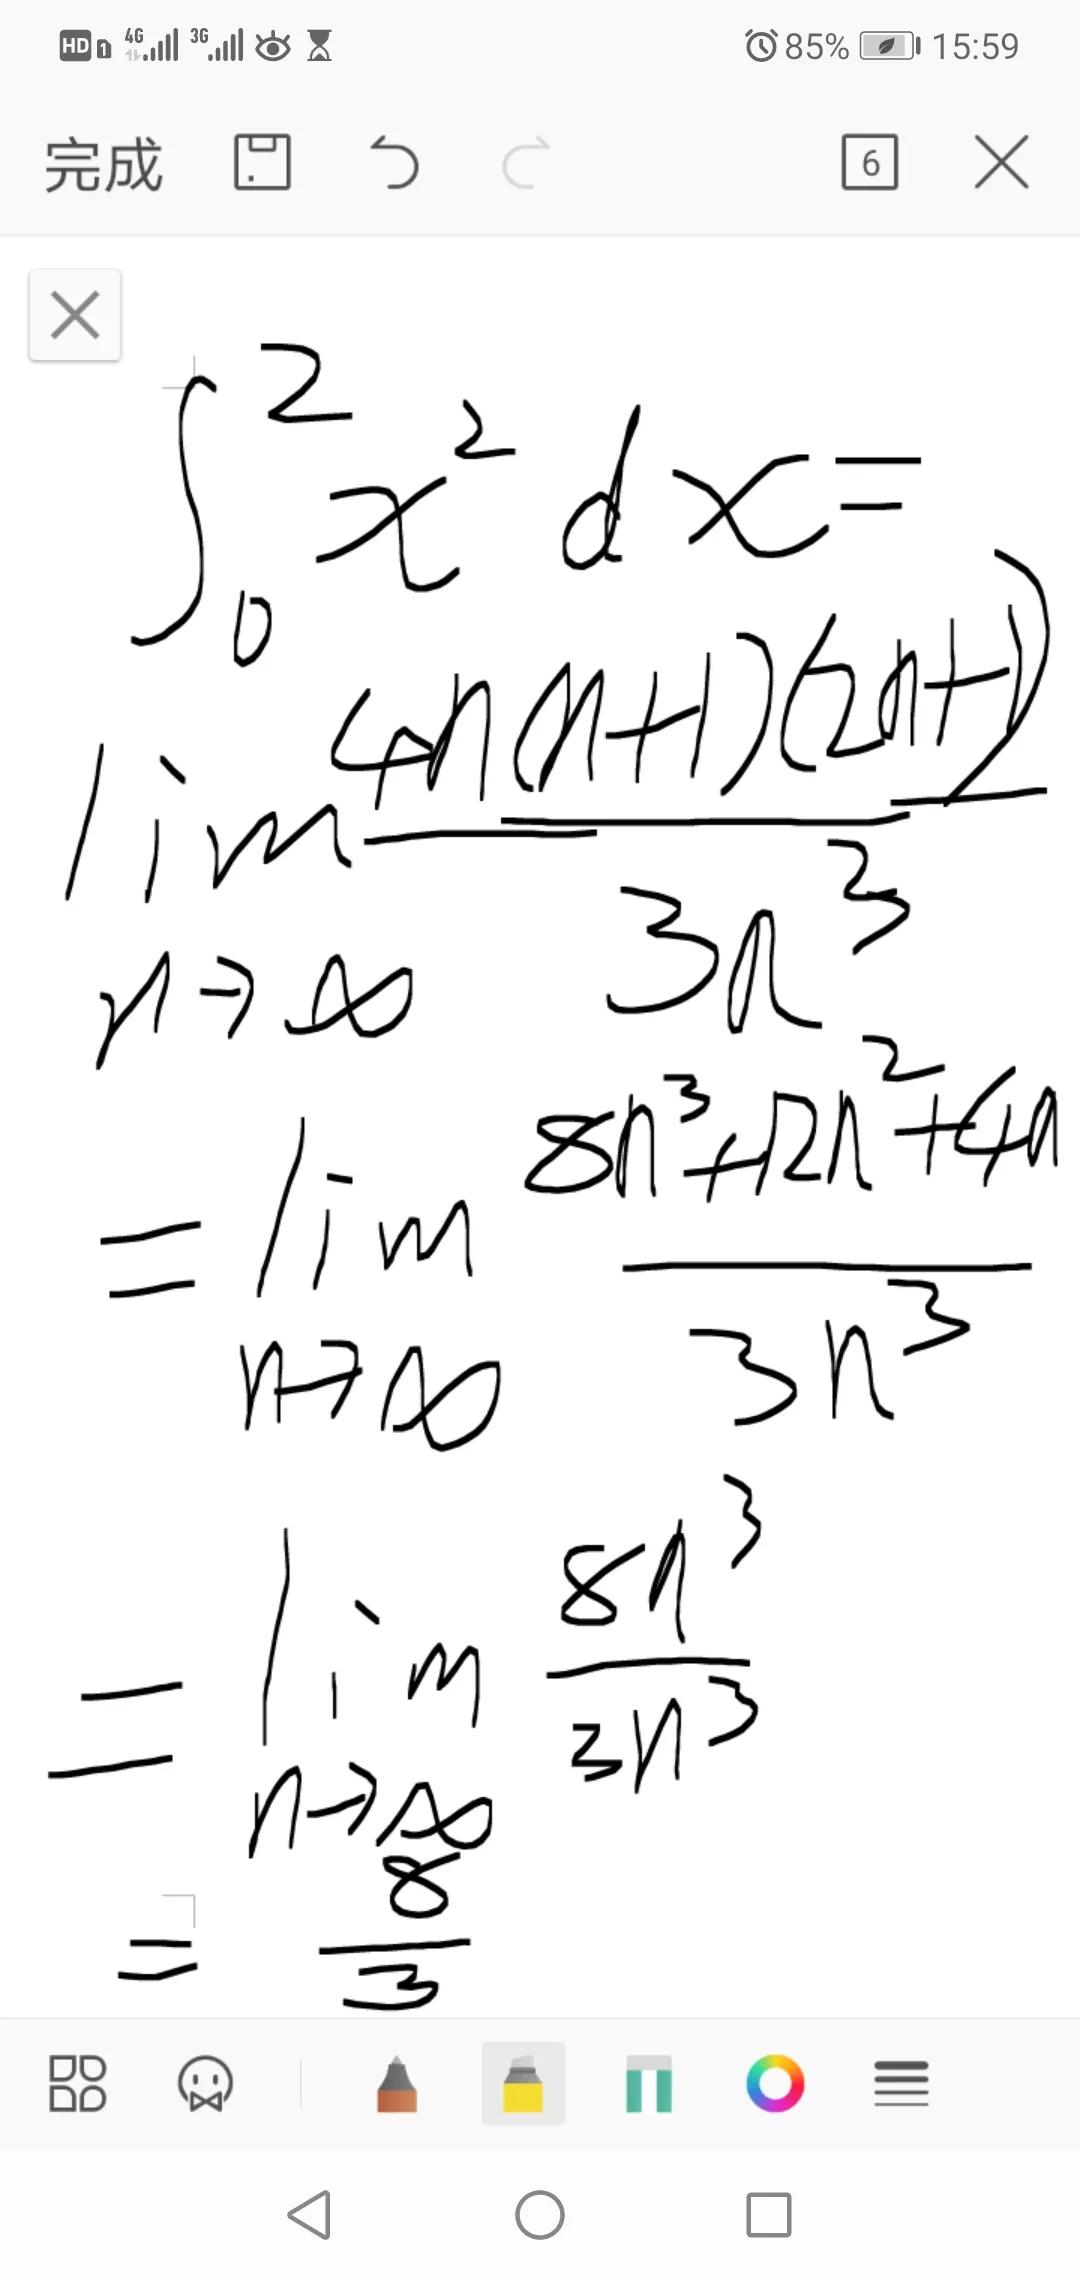 HD 1 4G 3G 85% 15:59
完成 6
∫₀² x² dx =
lim 4n(n+1)(2n+1)
n→∞ 3n³
= lim 8n³+12n²+4n
n→∞ 3n³
= lim 8n³
n→∞ 3n³
= 8
3